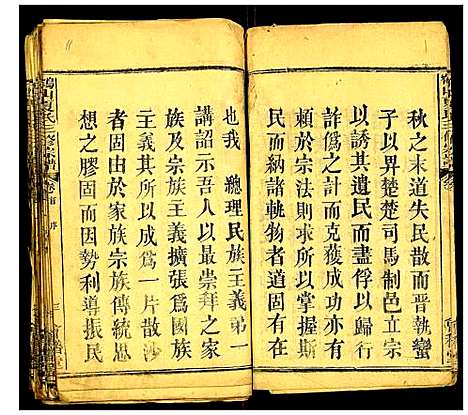 秋之末道失民散而晉執蠻
子以畀楚楚司馬制邑立宗
以誘其遺民而盡俘以歸行
詐僞之計而克獲成功亦有
賴於宗法則求所以掌握斯
民而納諸軌物者道固有在
也我 總理民族主義第一
講詔示吾人以最崇拜之家
族及宗族主義擴張爲國族
主義其所以成爲一片散沙
者由於家族宗族傳統思
想之膠固而因勢利導振民
鶴山夏氏三修宗譜